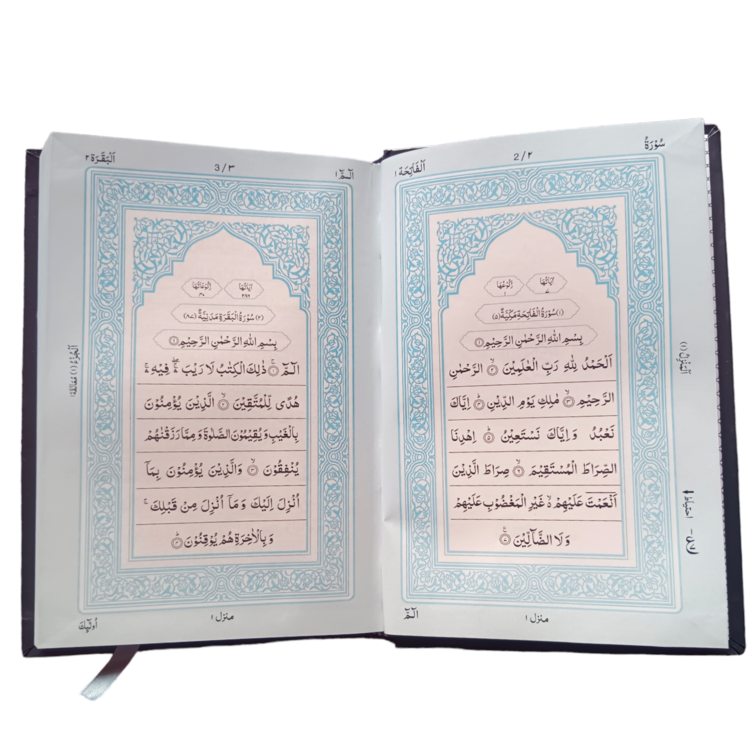 سُوْرَةُ
2/٢
اَلْفَاتِحَة ١
اٰيَاتُهَا
٧
رُكُوْعُهَا
١
(١) سُوْرَةُ الْفَاتِحَةِ مَكِّيَّةٌ (٥)
بِسْمِ اللّٰهِ الرَّحْمٰنِ الرَّحِيْمِ ۝١
اَلْحَمْدُ لِلّٰهِ رَبِّ الْعٰلَمِيْنَ ۝٢ الرَّحْمٰنِ
الرَّحِيْمِ ۝٣ مٰلِكِ يَوْمِ الدِّيْنِ ۝٤ اِيَّاكَ
نَعْبُدُ وَاِيَّاكَ نَسْتَعِيْنُ ۝٥ اِهْدِنَا
الصِّرَاطَ الْمُسْتَقِيْمَ ۝٦ صِرَاطَ الَّذِيْنَ
اَنْعَمْتَ عَلَيْهِمْ ۙ غَيْرِ الْمَغْضُوْبِ عَلَيْهِمْ
وَلَا الضَّآلِّيْنَ
منزل ١
الٓمّٓ
احتیاط
اَلْبَقَرَة ٢
3/٣
الٓمّٓ ١
اٰيَاتُهَا
٢٨٦
رُكُوْعَاتُهَا
٤٠
(٢) سُوْرَةُ الْبَقَرَةِ مَدَنِيَّةٌ (٨٧)
بِسْمِ اللّٰهِ الرَّحْمٰنِ الرَّحِيْمِ
الٓمّٓ ۝١ ذٰلِكَ الْكِتٰبُ لَا رَيْبَ ۛ فِيْهِ ۛ
هُدًى لِّلْمُتَّقِيْنَ ۝٢ الَّذِيْنَ يُؤْمِنُوْنَ
بِالْغَيْبِ وَيُقِيْمُوْنَ الصَّلٰوةَ وَمِمَّا رَزَقْنٰهُمْ
يُنْفِقُوْنَ ۝٣ وَالَّذِيْنَ يُؤْمِنُوْنَ بِمَآ
اُنْزِلَ اِلَيْكَ وَمَآ اُنْزِلَ مِنْ قَبْلِكَ ۚ
وَبِالْاٰخِرَةِ هُمْ يُوْقِنُوْنَ ۝٤
منزل ١
اُولٰٓئِكَ